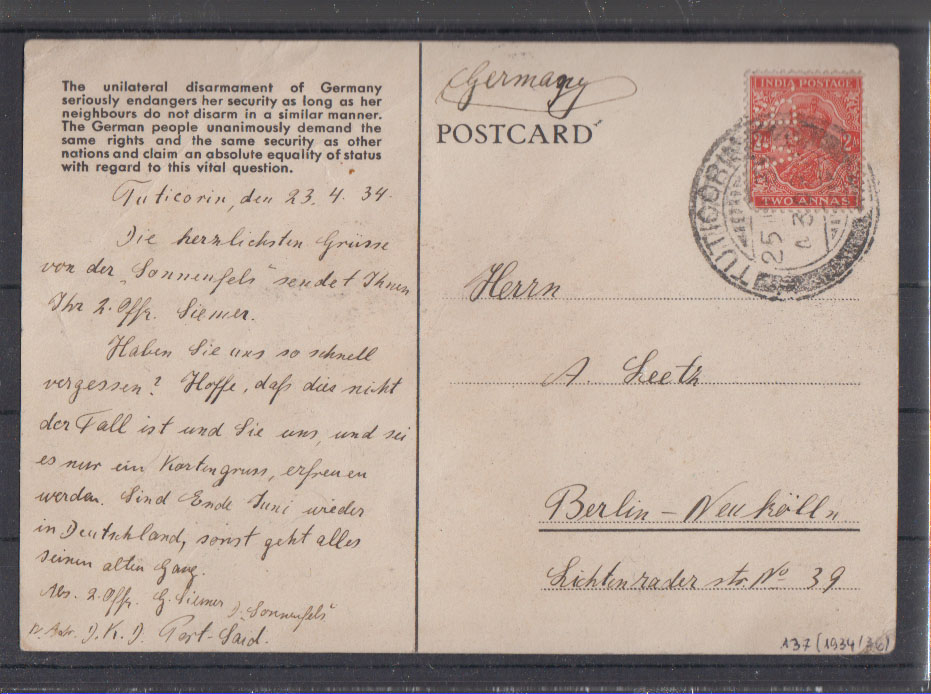 The unilateral disarmament of Germany
seriously endangers her security as long as her
neighbours do not disarm in a similar manner.
The German people unanimously demand the
same rights and the same security as other
nations and claim an absolute equality of status
with regard to this vital question.
Tuticorin, den 23. 4. 34.
Die herzlichsten Grüsse
von der „Sonnenfels" sendet Ihnen
Ihr 2. Offz. Siemer.
Haben Sie uns so schnell
vergessen? Hoffe, daß dies nicht
der Fall ist und Sie uns, und sei
es nur ein Kartengruss, erfreuen
werden. Sind Ende Juni wieder
in Deutschland, sonst geht alles
seinen alten Gang.
Abs. 2. Offz. G. Siemer D. „Sonnenfels"
Port-Said.
Germany
POSTCARD
INDIA POSTAGE
2As
TWO ANNAS
TUTICORIN
25
Herrn
A. Leetz
Berlin - Neukölln
Lichtenrader str. No 39
137 (1934/36)